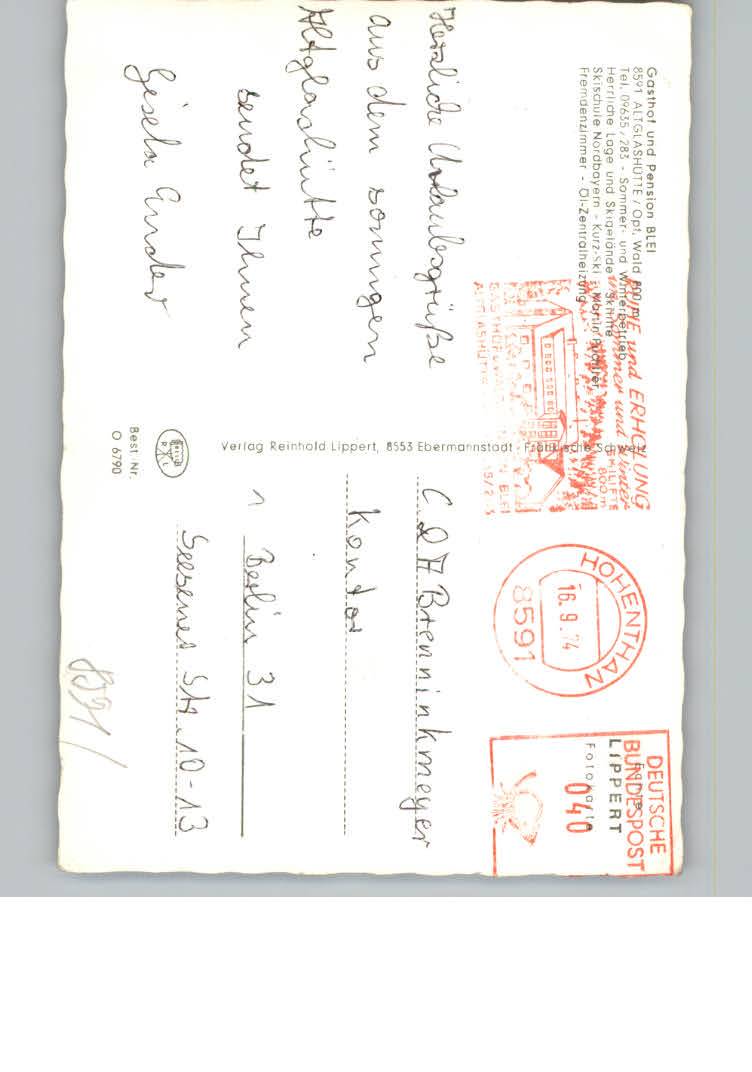 Gasthof und Pension BLEI
8591 ALTGLASHÜTTE / Opf. Wald 800 m
Tel. 09635 / 283 - Sommer- und Winterbetrieb
Herrliche Lage und Skigelände - Skilifte
Skischule Nordbayern - Kurz-Ski - Martin Puchtler
Fremdenzimmer - Öl-Zentralheizung
RUHE und ERHOLUNG
im Sommer und Winter
SKILIFTE
800m
GASTHOF
BLEI
ALTGLASHÜTTE
HOHENTHAN
16.9.74
8591
DEUTSCHE
BUNDESPOST
LIPPERT
Fotokarte
040
Herzliche Urlaubsgrüße
aus dem sonnigen
Altglashütte
sendet Ihnen
Gisela Ander
Verlag Reinhold Lippert, 8553 Ebermannstadt - Fränkische Schweiz
R L
Best. Nr.
O 6790
C & A Brenninkmeyer
Kontor
1 Berlin 31
Seesener Str. 10-13
8591/